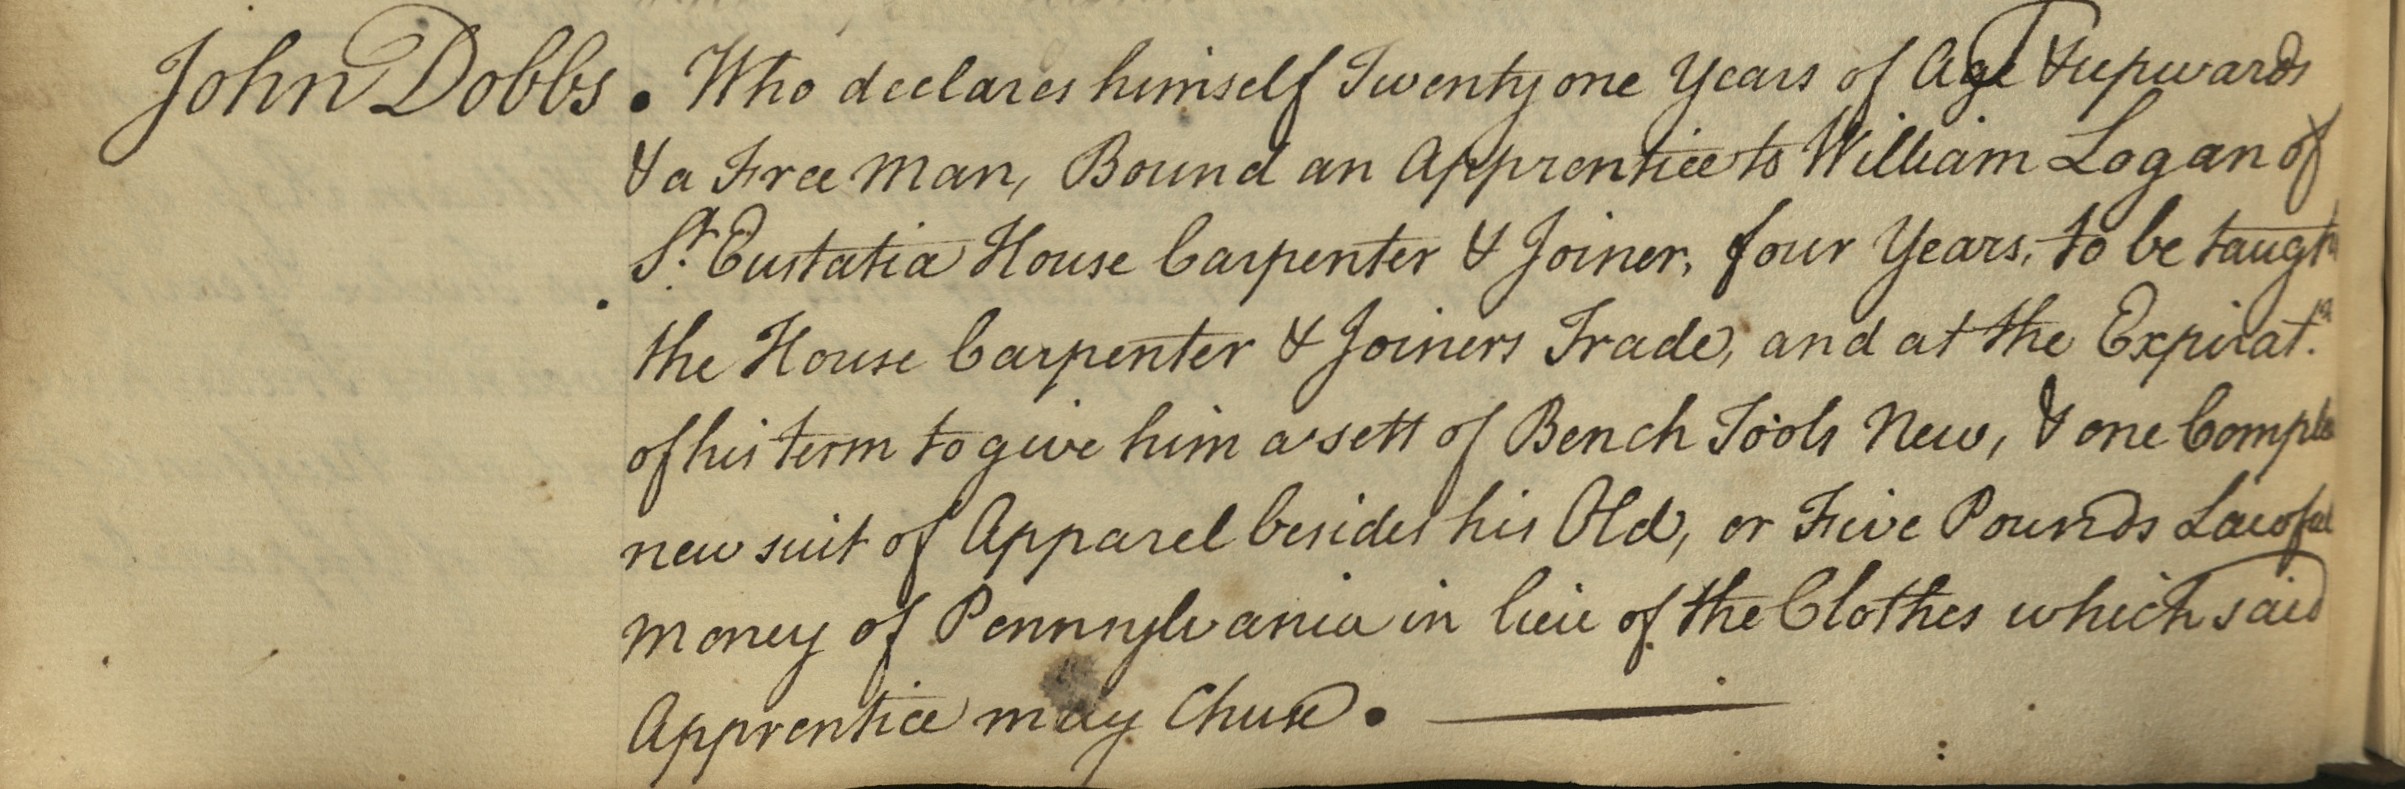 John Dobbs. Who declares himself Twenty one Years of Age & upwards
& a Free Man, Bound an Apprentice to William Logan of
St. Eustatia House Carpenter & Joiner, four Years, to be taught
the House Carpenter & Joiners Trade, and at the Expirat.n
of his term to give him a sett of Bench Tools New, & one Comple
new suit of Apparel besides his Old, or Five Pounds Lawful
money of Pennsylvania in lieu of the Clothes which said
Apprentice may Chuse.